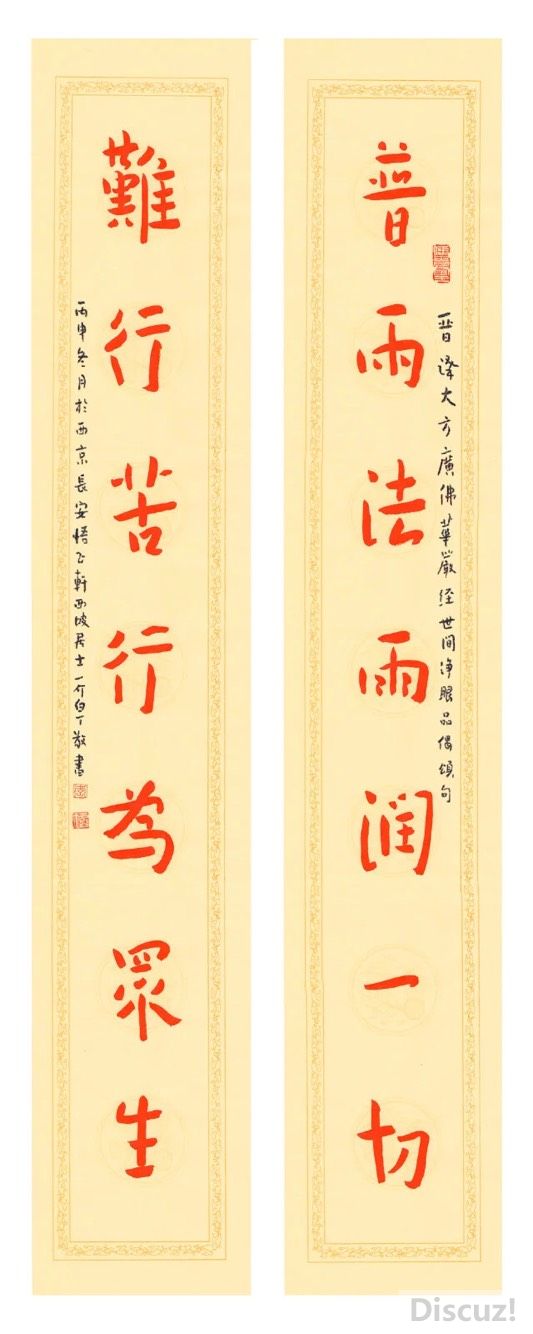 普雨法雨润一切
晋译大方廣佛華嚴经世间净眼品偈颂句
難行苦行为眾生
丙申冬月於西京長安悟正軒西坡居士一介白丁敬書
Discuz!